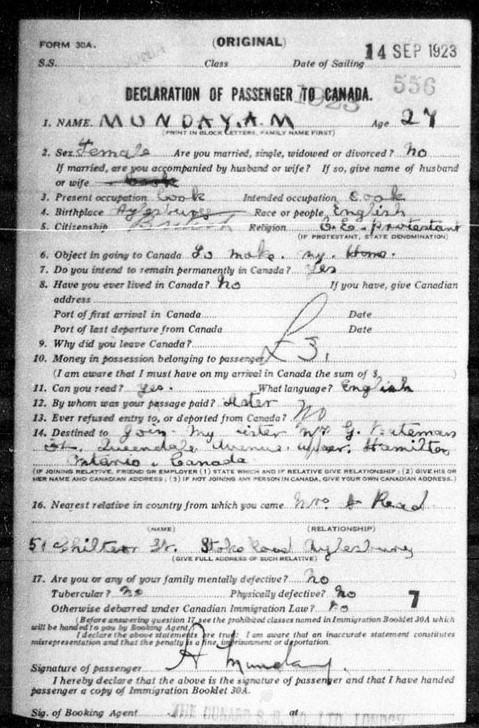 FORM 30A.
(ORIGINAL)
S.S. Class Date of Sailing 14 SEP 1923
556
DECLARATION OF PASSENGER TO CANADA.
1923
1. NAME. MUNDAY. A. M Age 27
(PRINT IN BLOCK LETTERS, FAMILY NAME FIRST)
2. Sex Female Are you married, single, widowed or divorced? No
If married, are you accompanied by husband or wife? If so, give name of husband
or wife
3. Present occupation Cook Intended occupation Cook
4. Birthplace Aylesbury Race or people English
5. Citizenship British Religion C.E. protestant
(IF PROTESTANT, STATE DENOMINATION)
6. Object in going to Canada To make my Home.
7. Do you intend to remain permanently in Canada? Yes
8. Have you ever lived in Canada? No If you have, give Canadian
address
Port of first arrival in Canada Date
Port of last departure from Canada Date
9. Why did you leave Canada?
10. Money in possession belonging to passenger £3.
(I am aware that I must have on my arrival in Canada the sum of $
11. Can you read? yes. What language? English
12. By whom was your passage paid? Sister
13. Ever refused entry to, or deported from Canada? No
14. Destined to join my sister Mrs G. Bateman
Queensdale Avenue upper, Hamilton
Ontario. Canada.
(IF JOINING RELATIVE, FRIEND OR EMPLOYER (1) STATE WHICH AND IF RELATIVE GIVE RELATIONSHIP; (2) GIVE HIS OR
HER NAME AND CANADIAN ADDRESS; (3) IF NOT JOINING ANY PERSON IN CANADA, GIVE YOUR OWN CANADIAN ADDRESS.)
16. Nearest relative in country from which you came Mrs Read
(NAME) (RELATIONSHIP)
51 Chiltern St. Stoke Road Aylesbury
(GIVE FULL ADDRESS OF SUCH RELATIVE)
17. Are you or any of your family mentally defective? no
Tubercular? No Physically defective? No 7
Otherwise debarred under Canadian Immigration Law? No
(Before answering question 17 see the prohibited classes named in Immigration Booklet 30A which
will be handed to you by Booking Agent).
I declare the above statements are true: I am aware that an inaccurate statement constitutes
misrepresentation and that the penalty is a fine, imprisonment or deportation.
Signature of passenger A Munday.
I hereby declare that the above is the signature of passenger and that I have handed
passenger a copy of Immigration Booklet 30A.
Sig. of Booking Agent THE CUNARD S.S. CO. LTD. LONDON at